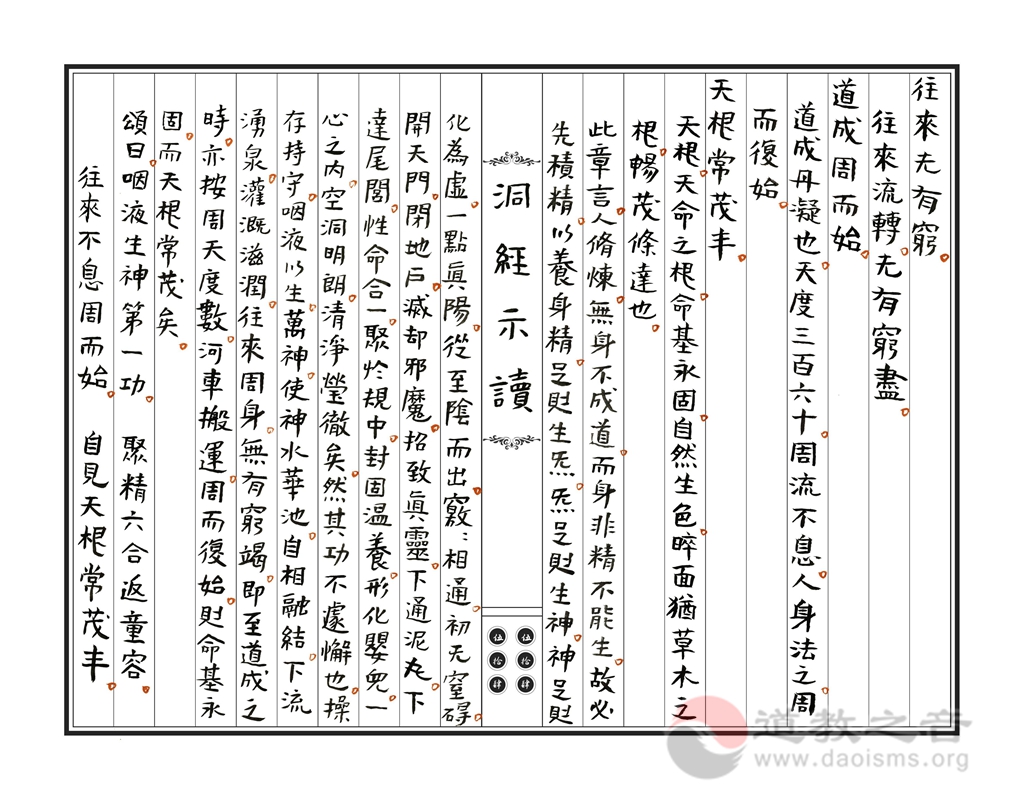 往來无有窮
往來流轉无有窮盡
道成周而始
道成丹凝也天度三百六十周流不息人身法之周
而復始
天根常茂丰
天根天命之根命基永固自然生色晬面猶草木之
根暢茂條達也
此章言人脩煉無身不成道而身非精不能生故必
先積精以養身精足則生炁炁足則生神神足則
洞經示讀
伍拾肆
伍拾肆
化為虛一點眞陽從至陰而出竅竅相通初无窒碍
開天門閉地戶滅却邪魔招致眞靈下通泥丸下
達尾閭性命合一聚於規中封固温養形化嬰兒一
心之内空洞明朗清淨瑩徹矣然其功不遽懈也操
存持守咽液以生萬神使神水華池自相融結下流
湧泉灌溉滋潤往來周身無有窮竭即至道成之
時亦按周天度數河車搬運周而復始則命基永
固而天根常茂矣
頌曰咽液生神第一功 聚精六合返童容
往來不息周而始 自見天根常茂丰
道教之音
www.daoisms.org